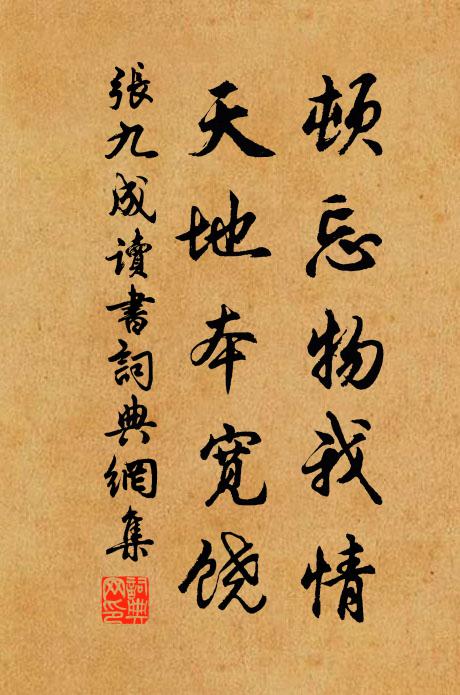 頓忘物我情
天地本寬饒
張九成讀書詞典網集
詞典
网印